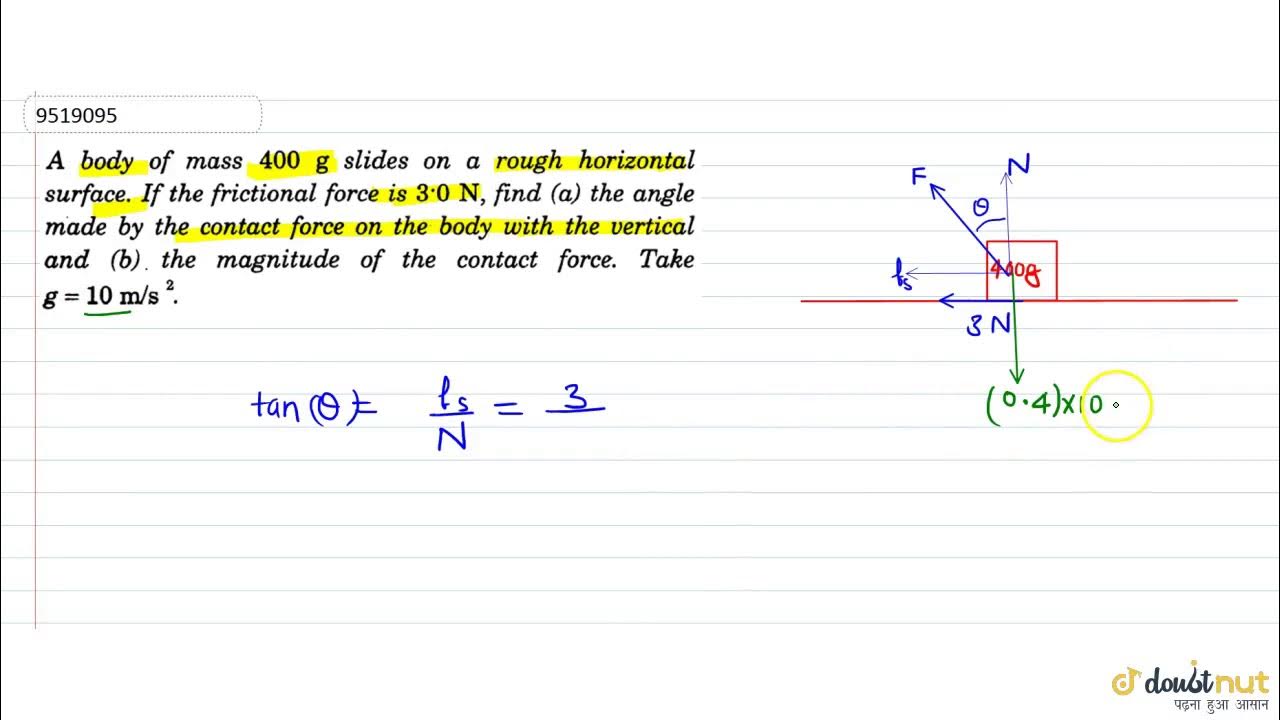 9519095
A body of mass 400 g slides on a rough horizontal
surface. If the frictional force is 3·0 N, find (a) the angle
made by the contact force on the body with the vertical
and (b) the magnitude of the contact force. Take
g = 10 m/s ².
F
N
θ
fs
400g
3 N
(0.4)×10
tan(θ) = fs/N = 3
doubtnut
पढ़ना हुआ आसान